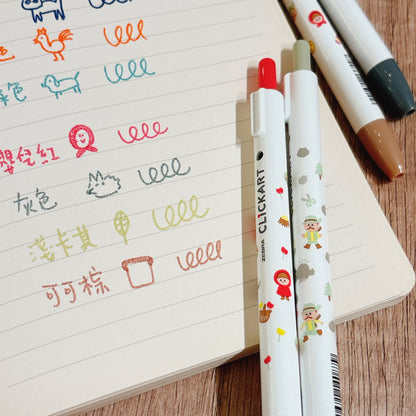 色
色
嬰粟紅
灰色
淺卡其
可可棕
ZEBRA CLICKART